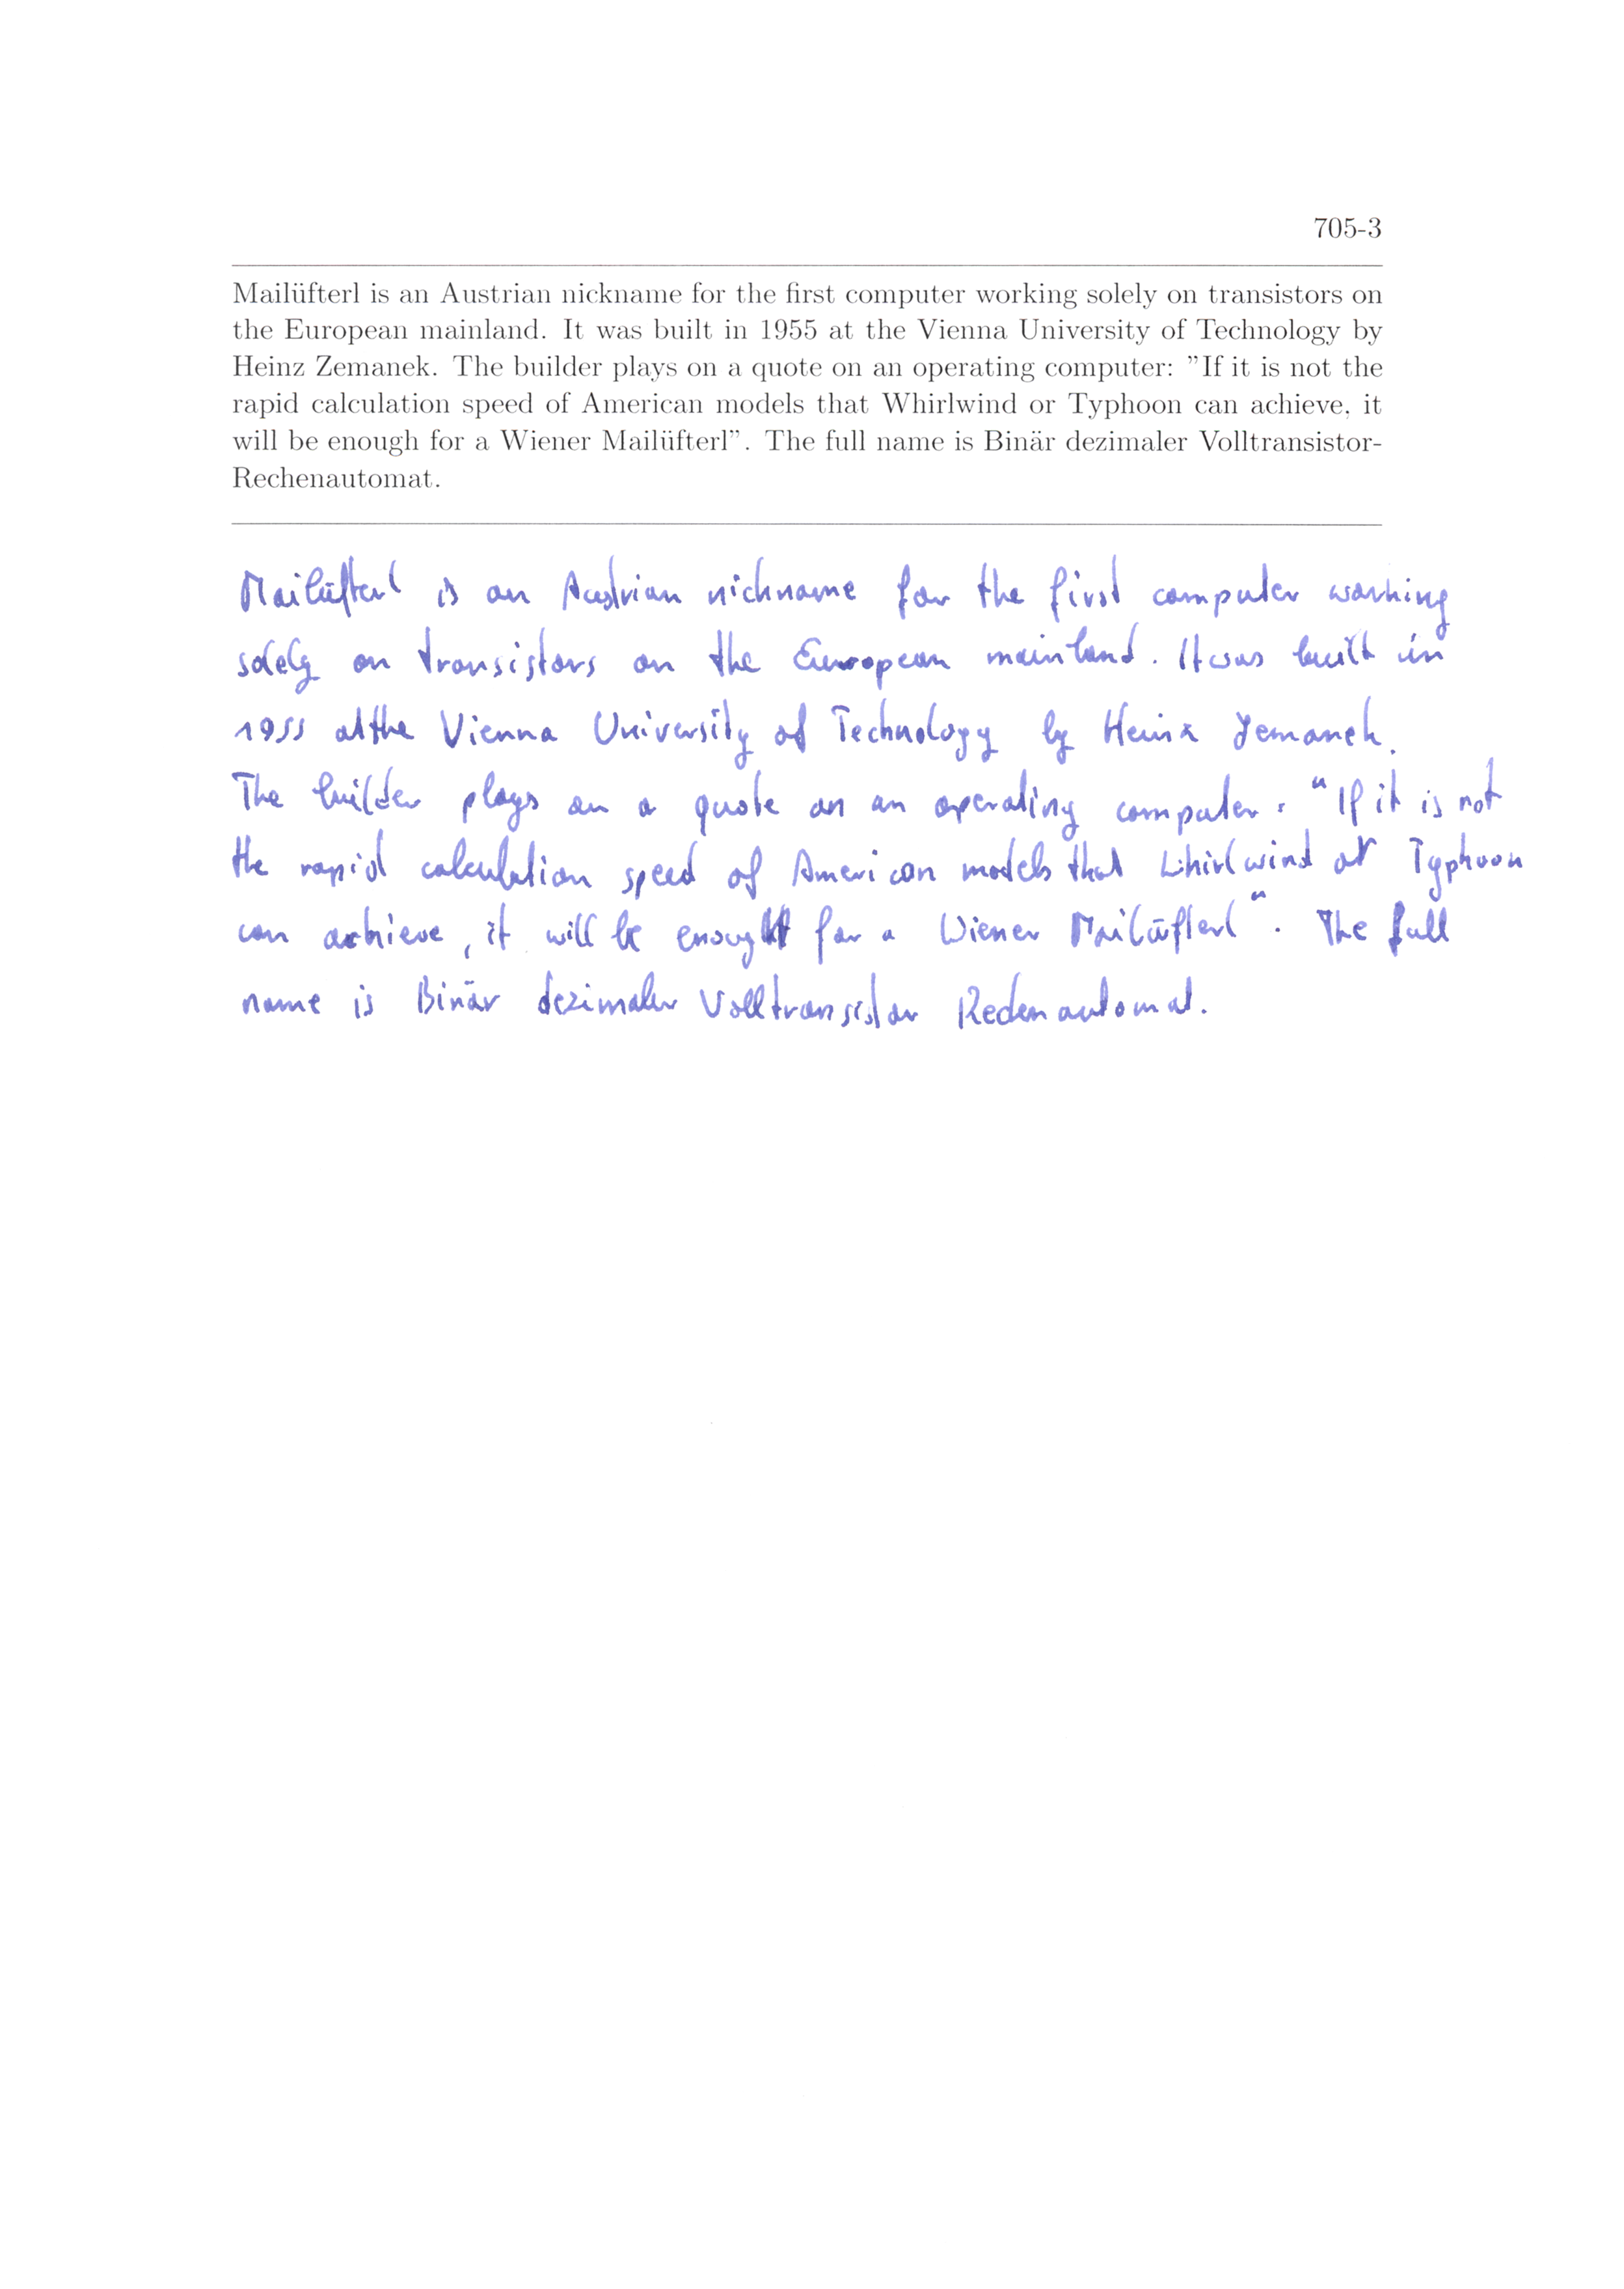 705-3
Mailüfterl is an Austrian nickname for the first computer working solely on transistors on
the European mainland. It was built in 1955 at the Vienna University of Technology by
Heinz Zemanek. The builder plays on a quote on an operating computer: ”If it is not the
rapid calculation speed of American models that Whirlwind or Typhoon can achieve, it
will be enough for a Wiener Mailüfterl”. The full name is Binär dezimaler Volltransistor-
Rechenautomat.
Mailüfterl is an Austrian nichname for the first computer working
solely on transistors on the European mainland. It was built in
1955 at the Vienna University of Technology by Heinz Zemanek.
The builder plays on a quote on an operating computer: "If it is not
the rapid calculation speed of American models that Whirlwind or Typhoon
can achieve, it will be enough for a Wiener Mailüfterl". The full
name is Binär dezimaler Volltransistor Rechenautomat.